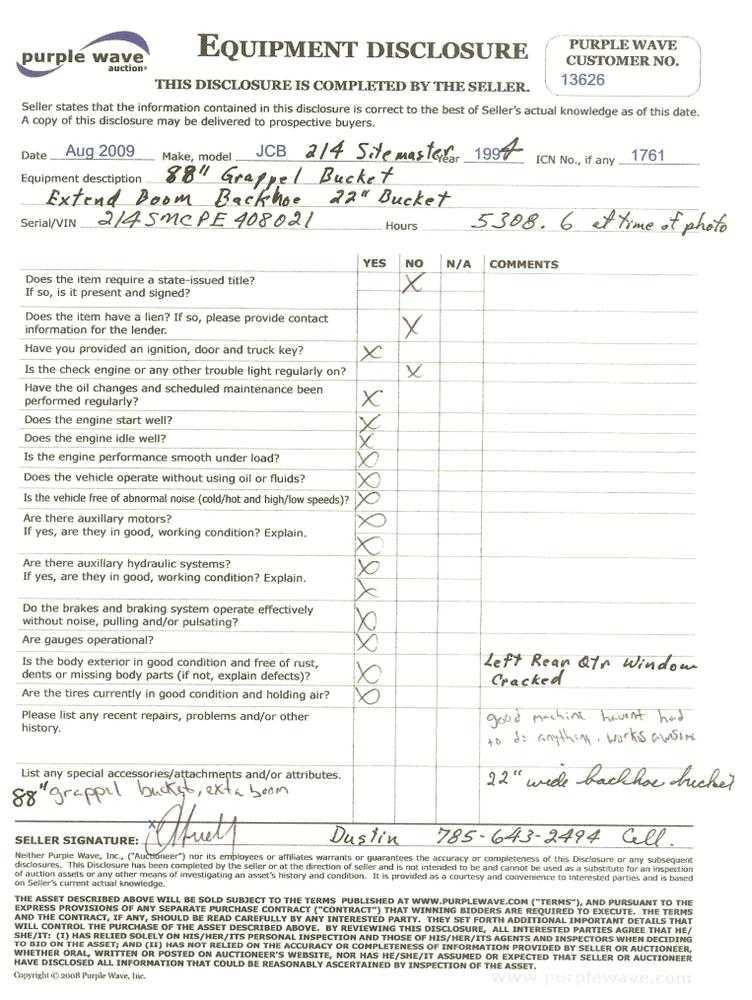 purple wave
auction®
EQUIPMENT DISCLOSURE
PURPLE WAVE
CUSTOMER NO.
13626
THIS DISCLOSURE IS COMPLETED BY THE SELLER.
Seller states that the information contained in this disclosure is correct to the best of Seller's actual knowledge as of this date.
A copy of this disclosure may be delivered to prospective buyers.
Date Aug 2009 Make, model JCB 214 Sitemaster Year 1994 ICN No., if any 1761
Equipment desctiption 88" Grappel Bucket
Extend Boom Backhoe 22" Bucket
Serial/VIN 214SMCPE408021 Hours 5308.6 at time of photo
YES NO N/A COMMENTS
Does the item require a state-issued title? X
If so, is it present and signed?
Does the item have a lien? If so, please provide contact
information for the lender. X
Have you provided an ignition, door and truck key? X
Is the check engine or any other trouble light regularly on? X
Have the oil changes and scheduled maintenance been
performed regularly? X
Does the engine start well? X
Does the engine idle well? X
Is the engine performance smooth under load? X
Does the vehicle operate without using oil or fluids? X
Is the vehicle free of abnormal noise (cold/hot and high/low speeds)? X
Are there auxillary motors? X
If yes, are they in good, working condition? Explain. X
Are there auxillary hydraulic systems? X
If yes, are they in good, working condition? Explain. X
Do the brakes and braking system operate effectively
without noise, pulling and/or pulsating? X
Are gauges operational? X
Is the body exterior in good condition and free of rust, Left Rear Qtr Window
dents or missing body parts (if not, explain defects)? X Cracked
Are the tires currently in good condition and holding air? X
Please list any recent repairs, problems and/or other good machine havent had
history. to do anything. works awsome
List any special accessories/attachments and/or attributes. 22" wide backhoe bucket
88" grappel bucket, exta boom
SELLER SIGNATURE: x Dustin 785-643-2494 Cell.
Neither Purple Wave, Inc., ("Auctioneer") nor its employees or affiliates warrants or guarantees the accuracy or completeness of this Disclosure or any subsequent
disclosures. This Disclosure has been completed by the seller or at the direction of seller and is not intended to be and cannot be used as a substitute for an inspection
of auction assets or any other means of investigating an asset's history and condition. It is provided as a courtesy and convenience to interested parties and is based
on Seller's current actual knowledge.
THE ASSET DESCRIBED ABOVE WILL BE SOLD SUBJECT TO THE TERMS PUBLISHED AT WWW.PURPLEWAVE.COM ("TERMS"), AND PURSUANT TO THE
EXPRESS PROVISIONS OF ANY SEPARATE PURCHASE CONTRACT ("CONTRACT") THAT WINNING BIDDERS ARE REQUIRED TO EXECUTE. THE TERMS
AND THE CONTRACT, IF ANY, SHOULD BE READ CAREFULLY BY ANY INTERESTED PARTY. THEY SET FORTH ADDITIONAL IMPORTANT DETAILS THAT
WILL CONTROL THE PURCHASE OF THE ASSET DESCRIBED ABOVE. BY REVIEWING THIS DISCLOSURE, ALL INTERESTED PARTIES AGREE THAT HE/
SHE/IT: (I) HAS RELIED SOLELY ON HIS/HER/ITS PERSONAL INSPECTION AND THOSE OF HIS/HER/ITS AGENTS AND INSPECTORS WHEN DECIDING
TO BID ON THE ASSET; AND (II) HAS NOT RELIED ON THE ACCURACY OR COMPLETENESS OF INFORMATION PROVIDED BY SELLER OR AUCTIONEER,
WHETHER ORAL, WRITTEN OR POSTED ON AUCTIONEER'S WEBSITE, NOR HAS HE/SHE/IT ASSUMED OR EXPECTED THAT SELLER OR AUCTIONEER
HAVE DISCLOSED ALL INFORMATION THAT COULD BE REASONABLY ASCERTAINED BY INSPECTION OF THE ASSET.
Copyright © 2008 Purple Wave, Inc.
www.purplewave.com